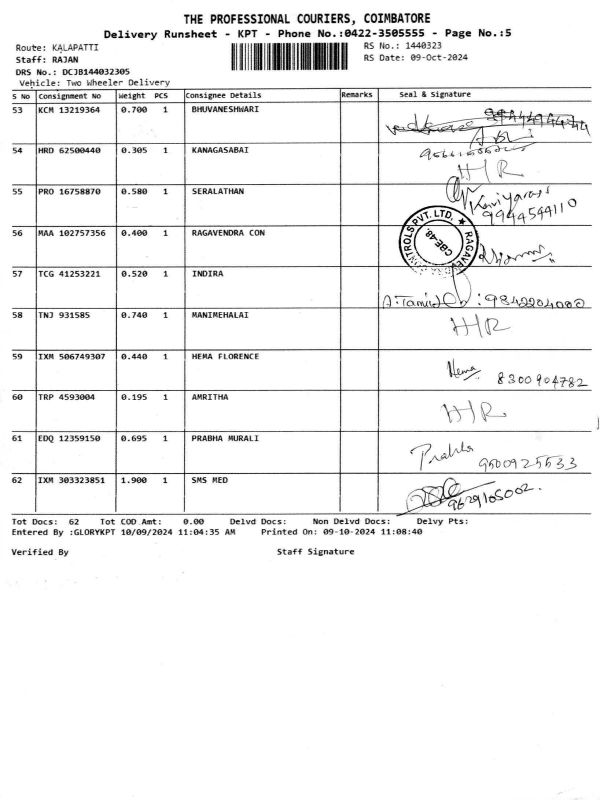 THE PROFESSIONAL COURIERS, COIMBATORE
Delivery Runsheet - KPT - Phone No.:0422-3505555 - Page No.:5
Route: KALAPATTI
RS No.: 1440323
Staff: RAJAN
RS Date: 09-Oct-2024
DRS No.: DCJB144032305
Vehicle: Two Wheeler Delivery
S No Consignment No Weight PCS Consignee Details Remarks Seal & Signature
53 KCM 13219364 0.700 1 BHUVANESHWARI
54 HRD 62500440 0.305 1 KANAGASABAI
H/R
55 PRO 16758870 0.580 1 SERALATHAN
9944544110
56 MAA 102757356 0.400 1 RAGAVENDRA CON
PVT. LTD. ★ CBE-48.
57 TCG 41253221 0.520 1 INDIRA
: 9842204000
58 TNJ 931585 0.740 1 MANIMEHALAI
H/R
59 IXM 506749307 0.440 1 HEMA FLORENCE
Hema
8300904782
60 TRP 4593004 0.195 1 AMRITHA
H/R
61 EDQ 12359150 0.695 1 PRABHA MURALI
Prabha
9500925533
62 IXM 303323851 1.900 1 SMS MED
9629105002.
Tot Docs: 62 Tot COD Amt: 0.00 Delvd Docs: Non Delvd Docs: Delvy Pts:
Entered By :GLORYKPT 10/09/2024 11:04:35 AM Printed On: 09-10-2024 11:08:40
Verified By Staff Signature